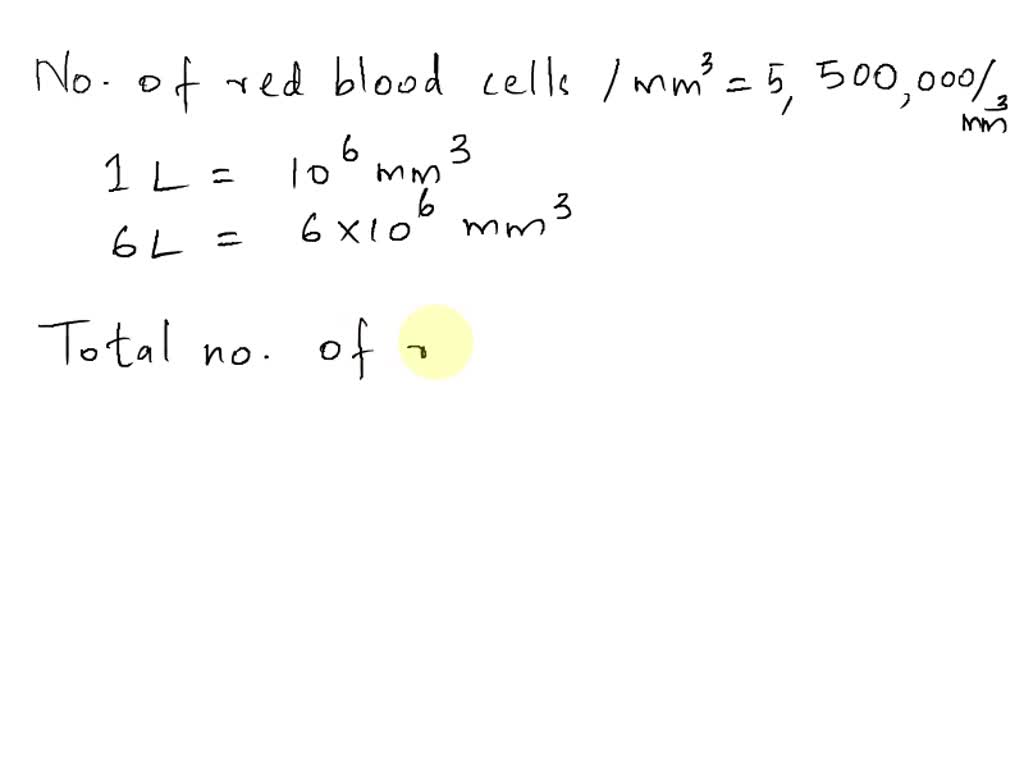 No. of red blood cells / mm³ = 5, 500,000/mm³
1 L = 10⁶ mm³
6 L = 6 × 10⁶ mm³
Total no. of r